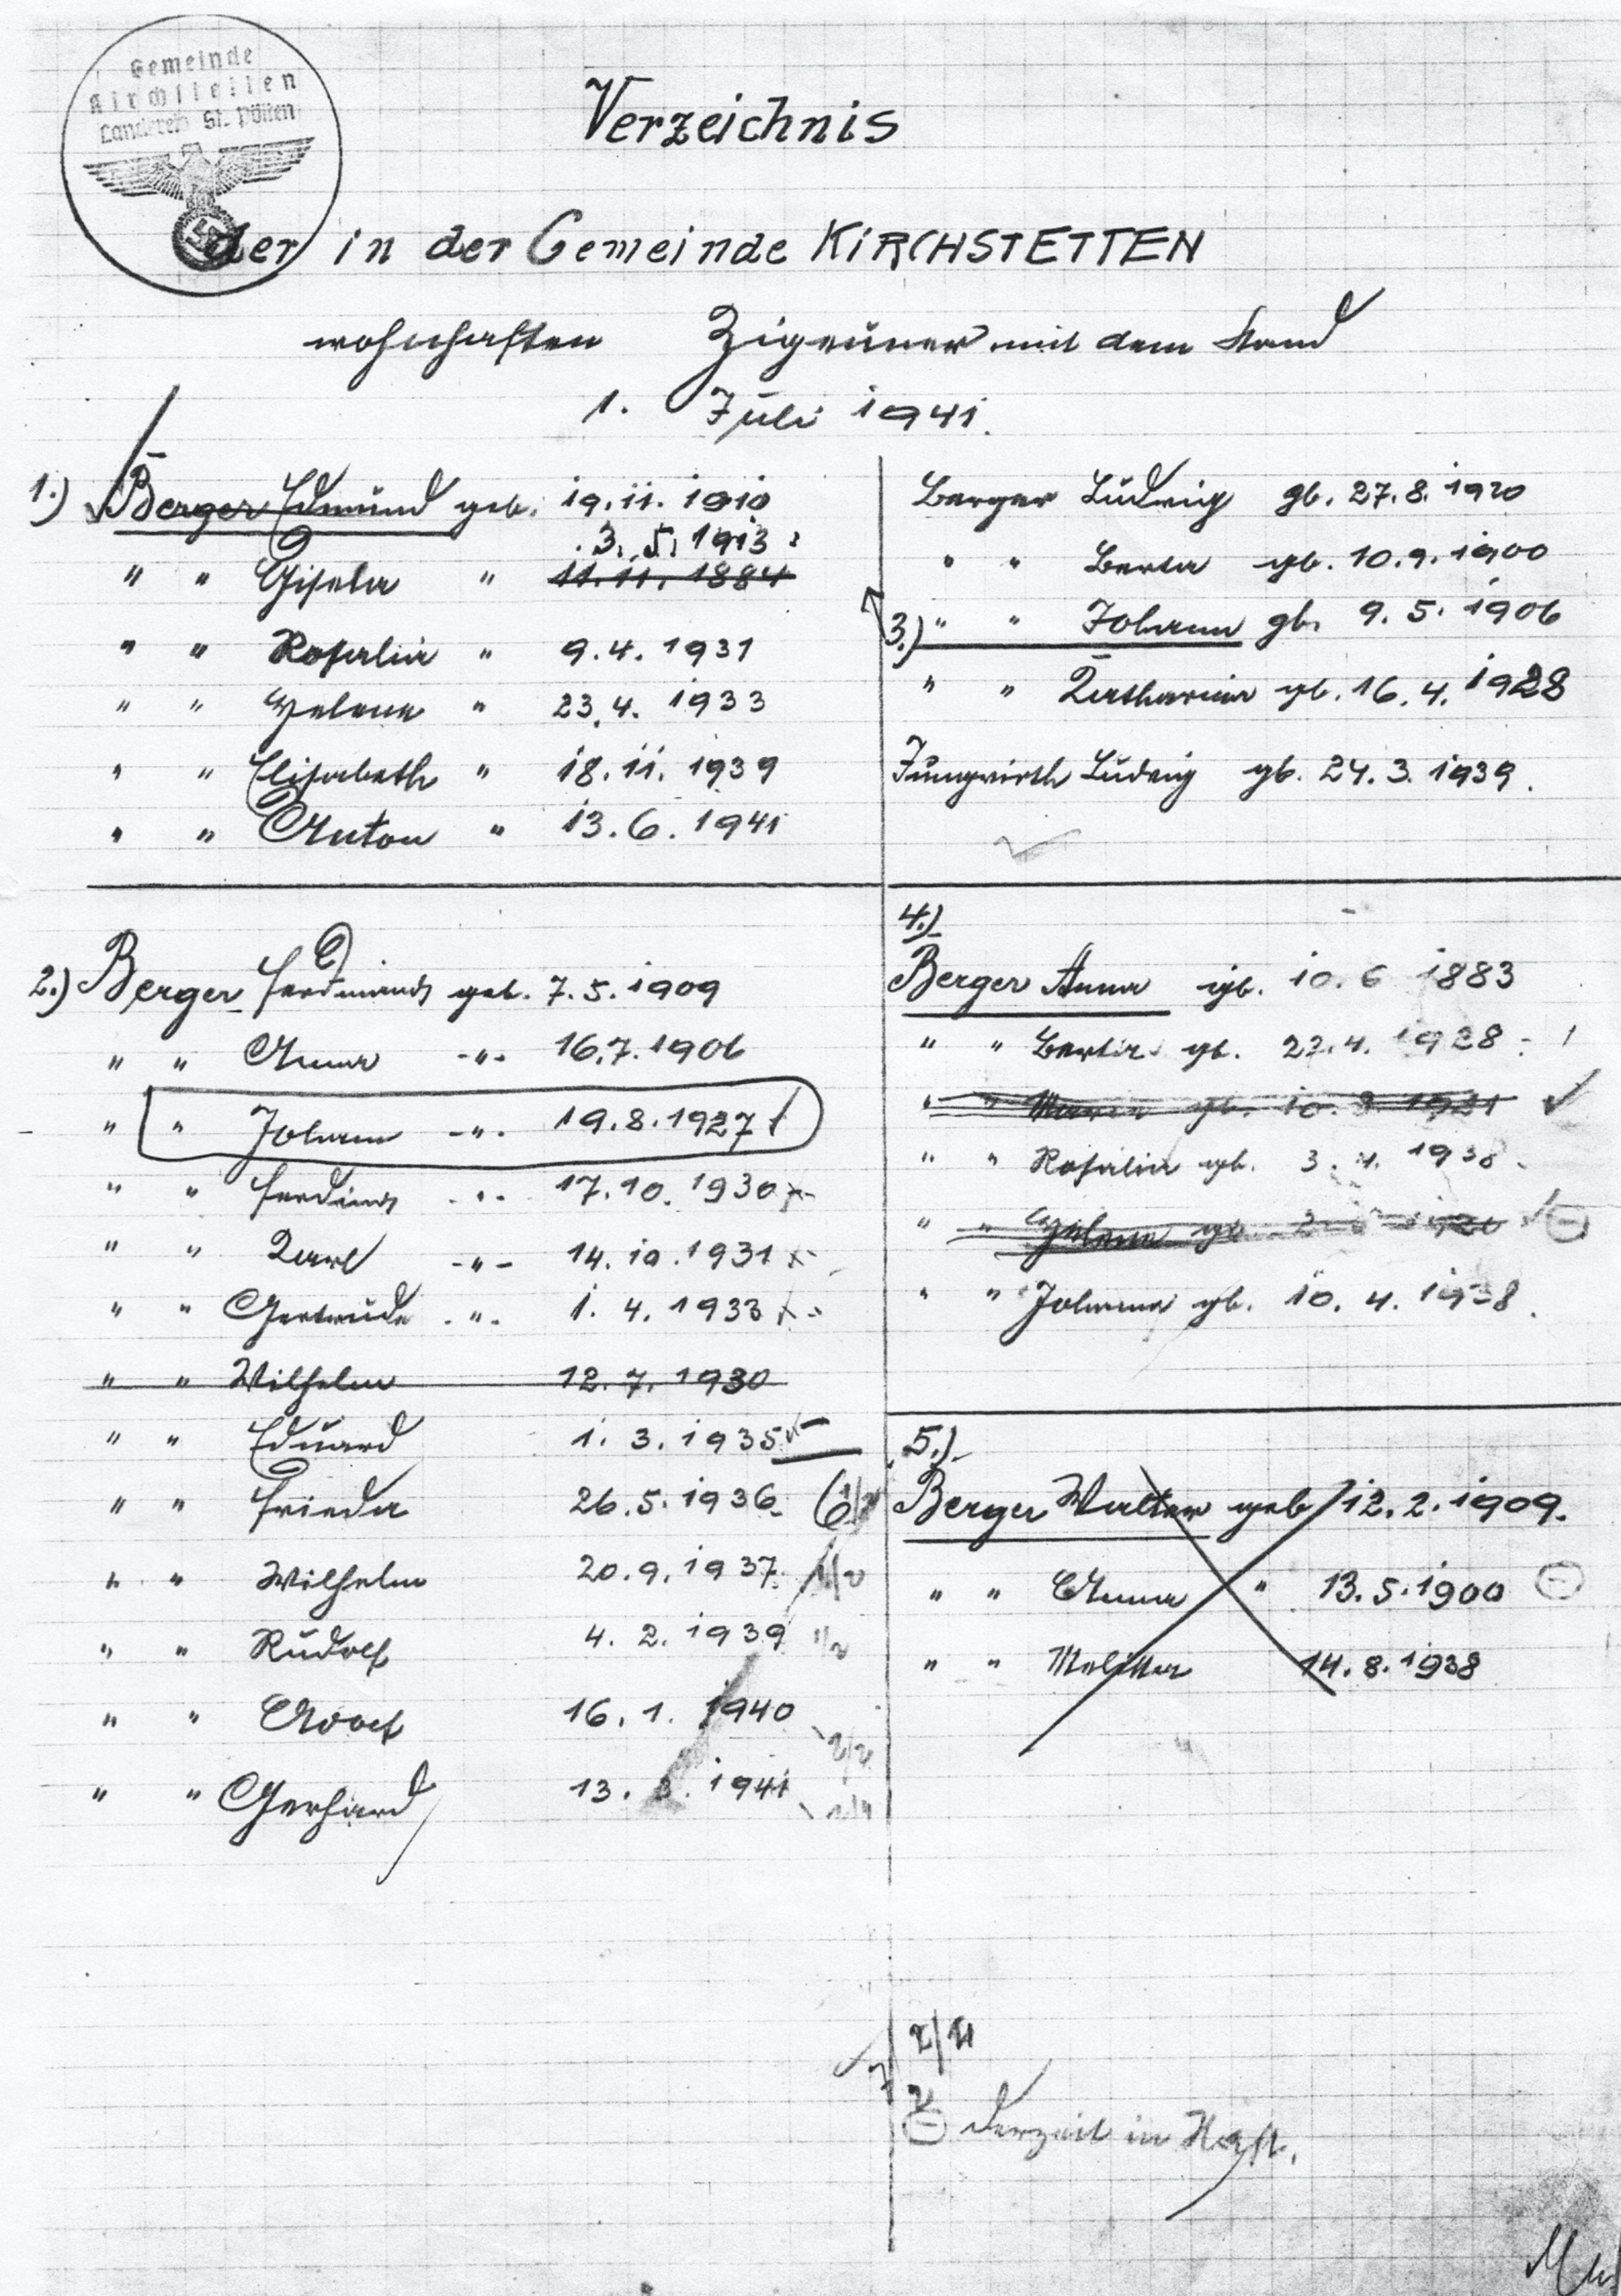 Gemeinde
Kirchstetten
Landkreis St. Pölten
Verzeichnis
der in der Gemeinde KIRCHSTETTEN
wohnhaften Zigeuner mit dem Stand
1. Juli 1941.
1.) Berger Edmund geb. 19.11.1910
3.5.1913
" " Gisela " 11.11.1884
" " Rosalia " 9.4.1931
" " Helene " 23.4.1933
" " Elisabeth " 18.11.1939
" " Anton " 13.6.1941
2.) Berger Ferdinand geb. 7.5.1909
" " Anna -"- 16.7.1906
" " Johann -"- 19.8.1927
" " Ferdinand -"- 17.10.1930
" " Karl -"- 14.10.1931
" " Gertrude -"- 1.4.1933
" " Wilhelm 12.7.1930
" " Eduard 1.3.1935
" " Frieda 26.5.1936
" " Wilhelm 20.9.1937
" " Rudolf 4.2.1939
" " Adolf 16.1.1940
" " Gerhard 13.3.1941
Berger Ludwig gb. 27.8.1920
" " Berta gb. 10.9.1900
3.) " " Johann gb. 9.5.1906
" " Katharina gb. 16.4.1928
Jungwirth Ludwig gb. 24.3.1939.
4.)
Berger Anna gb. 10.6 1883
" " Berta gb. 22.4.1928
" " Maria gb. 10.3.1921
" " Rosalia gb. 3.4.1938
" " Helene gb.
" " Johanna gb. 10.4.1938.
5.)
Berger Walter geb 12.2.1909.
" " Anna " 13.5.1900
" " Melitta 14.8.1938
derzeit in Haft.